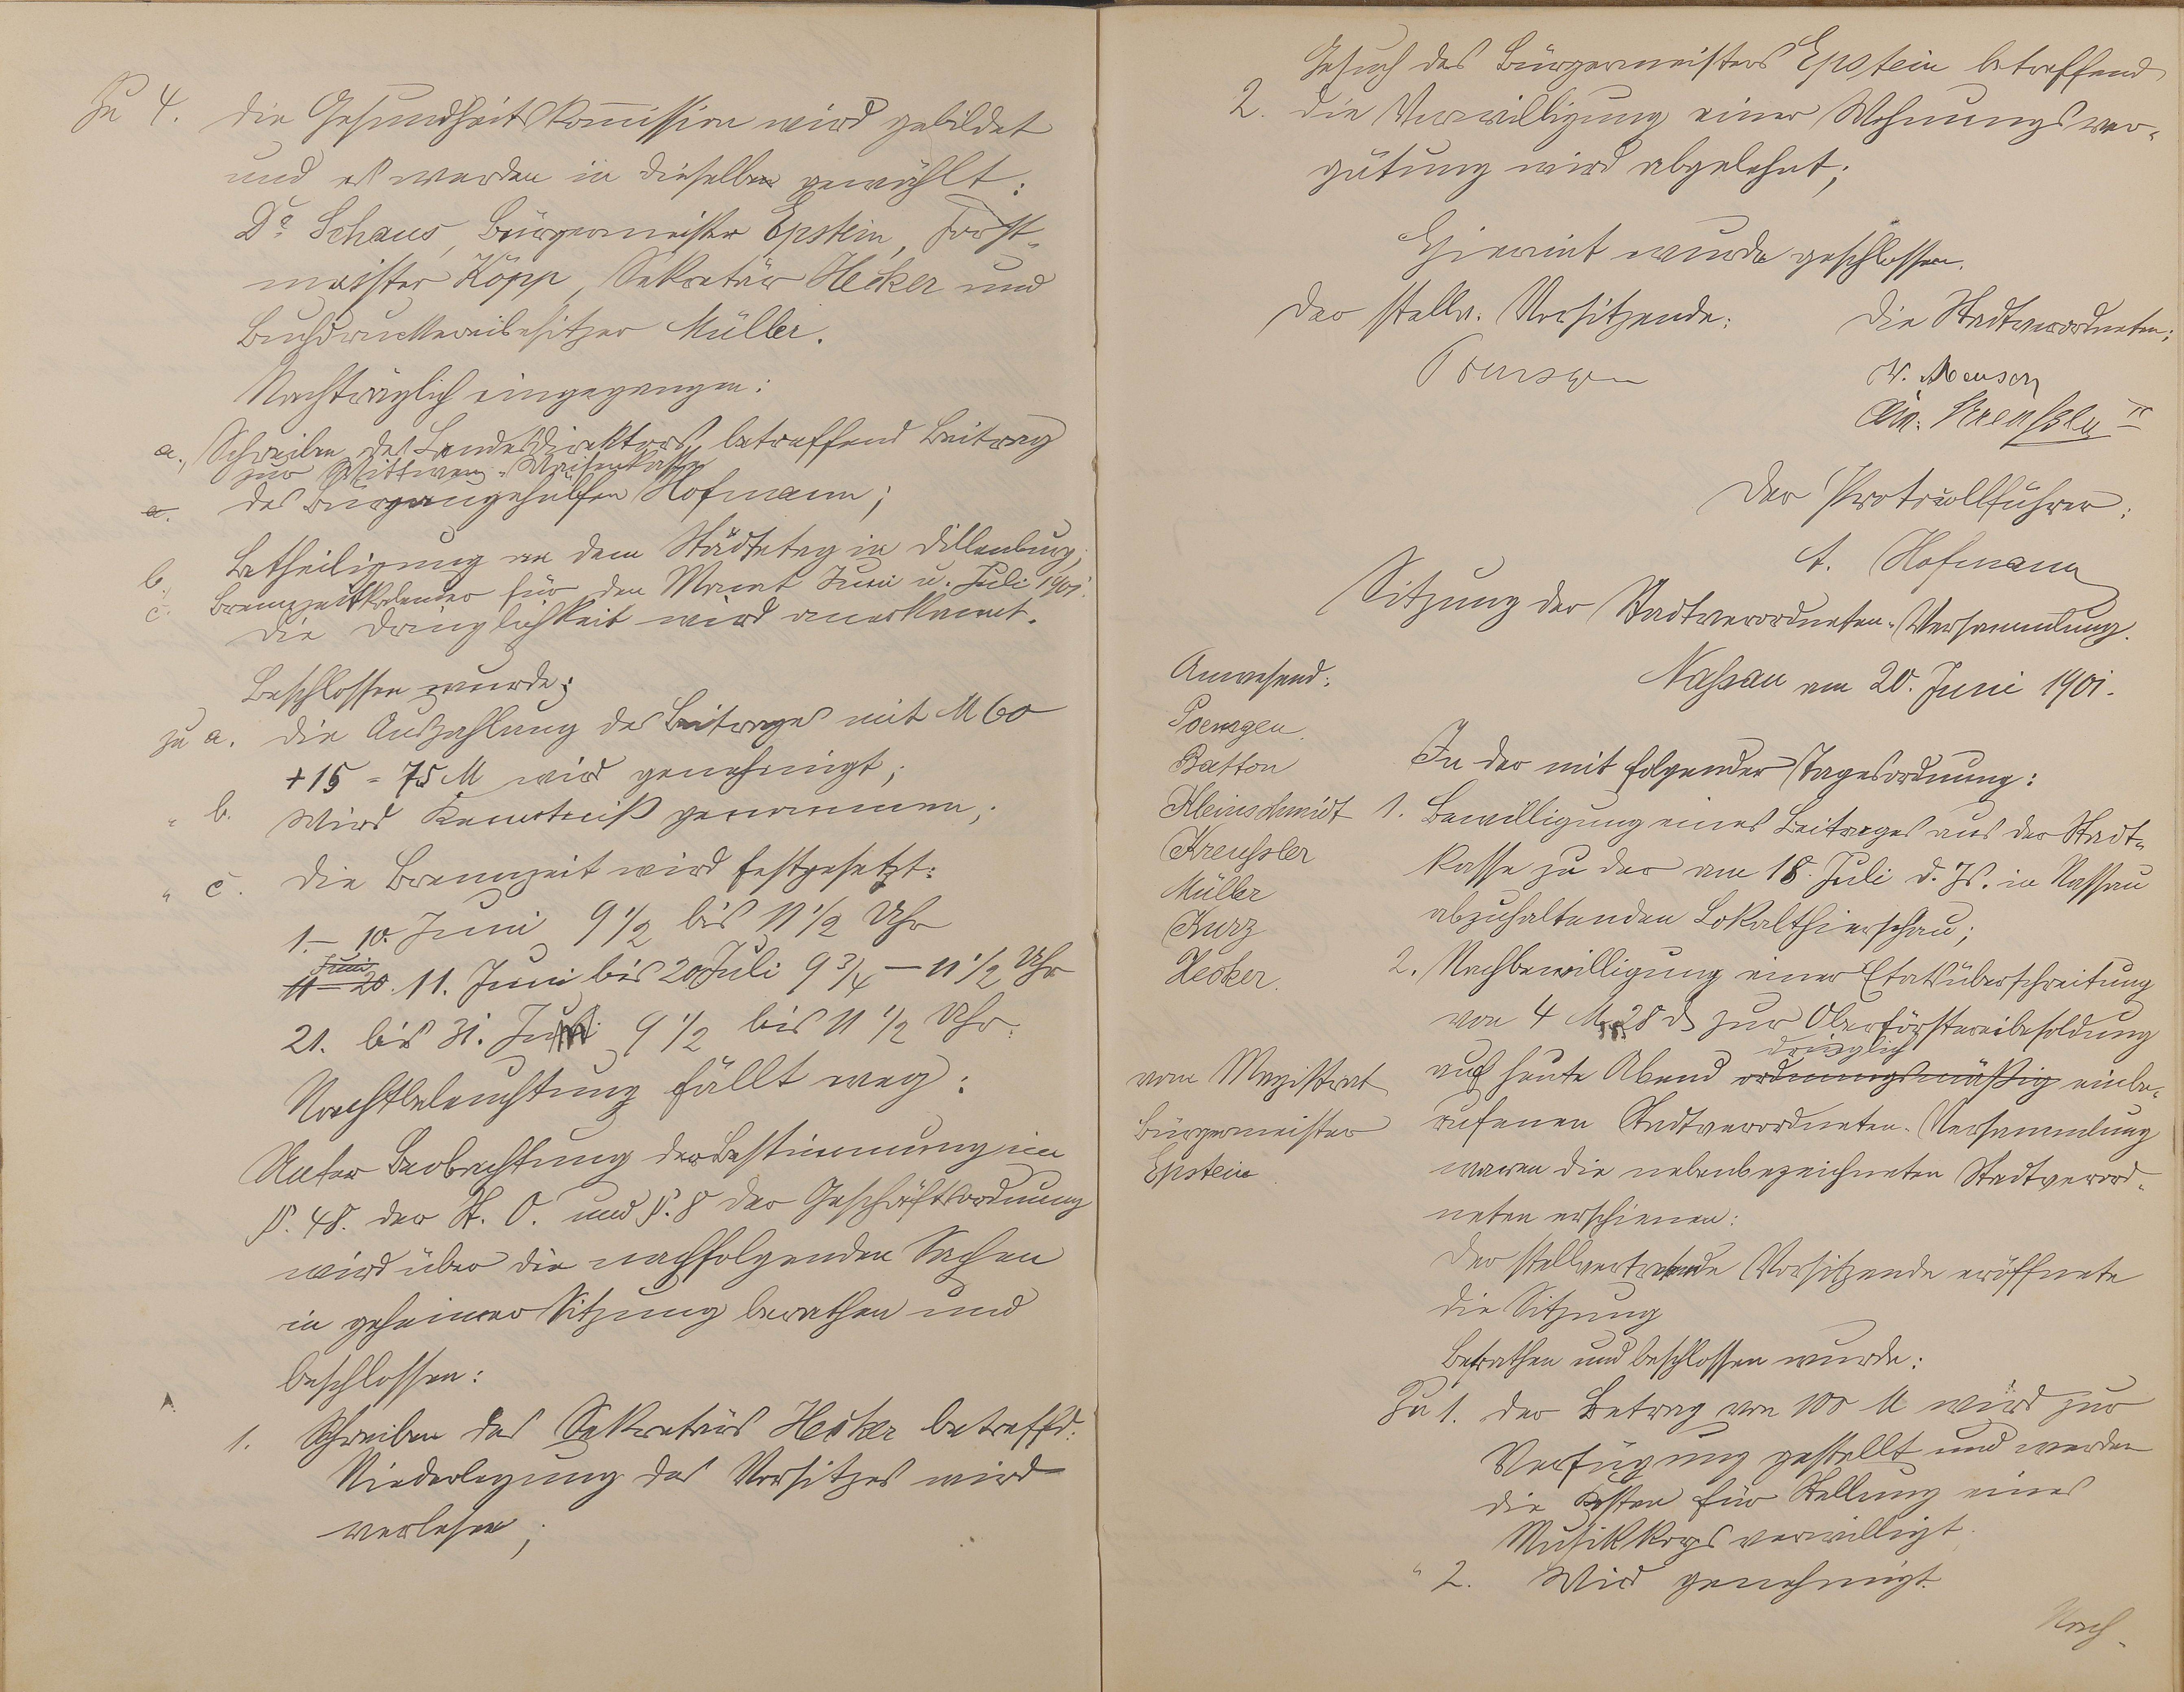 Zu 4. Die Gesundheitskom̄ission wird gebildet
und es werden in dieselbe gewählt:
Dr Schaus, Bürgermeister Epstein, Forst-
meister Köpp, Sekretär Hecker und
Buchdruckereibesitzer Müller.
Nachträglich eingegangen:
a., Schreiben des Landesdirektors, betreffend Beitrag
zur Wittwen- Waisenkasse
a. des Bürgergehülfen Hofmann;
b. Betheiligung an dem Städtetag in Dillenburg;
c. Brennzeitkalender für den Monat Juni u. Juli 1901.
Die Dringlichkeit wird anerkannt.
Beschlossen wurde:
zu a. Die Auszahlung des Beitrages mit M 60
+ 15 = 75 M wird genehmigt;
" b. Wird Kenntniß genommen;
" c. Die Brennzeit wird festgesetzt:
1.- 10. Juni 9 1/2 bis 11 1/2 Uhr
Juni
11 - 20. 11. Juni bis 20 Juli 9 3/4 - 11 1/2 Uhr
21. bis 31. Juli 9 1/2 bis 11 1/2 Uhr.
Nachtbeleuchtung fällt weg:
Unter Beobachtung der Bestimmung im
§. 48. der St. O. und §. 8 der Geschäftsordnung
wird über die nachfolgenden Sachen
in geheimer Sitzung berathen und
beschlossen:
1. Schreiben des Sekretärs Hecker betreffd.
Niederlegung des Vorsitzes wird
verlesen;
Gesuch des Bürgermeisters Epstein betreffend
2. die Verwilligung einer Wohnungsver-
gütung wird abgelehnt;
Hiermit wurde geschlossen.
Der stellv. Vorsitzende: Die Stadtverordneten:
Poensgen
Der Protocollführer:
A. Hofmann
Sitzung der Stadtverordneten-Versammlung.
Nassau am 20. Juni 1901.
Anwesend:
Poensgen.
Batton
Kleinschmidt
Kreußler
Müller
Kurz
Hecker.
vom Magistrat
Bürgermeister
Epstein.
In der mit folgender Tagesordnung:
1. Bewilligung eines Beitrages aus der Stadt-
kasse zu der am 18. Juli d. Js. in Nassau
abzuhaltenden Lokalthierschau;
2. Nachbewilligung einer Etatsüberschreitung
von 4 M 28 d zur Oberförstereibesoldung
dringlich
auf heute Abend ordnungsmäßig einbe-
rufenen Stadtverordneten-Versammlung
waren die nebenbezeichneten Stadtverord-
neten erschienen:
Der stellvertretende Vorsitzende eröffnete
die Sitzung
Berathen und beschlossen wurde:
Zu 1. Der Betrag von 100 M wird zur
Verfügung gestellt und werden
die Kosten für Stellung eines
Musikkorps verwilligt.
" 2. Wird genehmigt.
Nach-